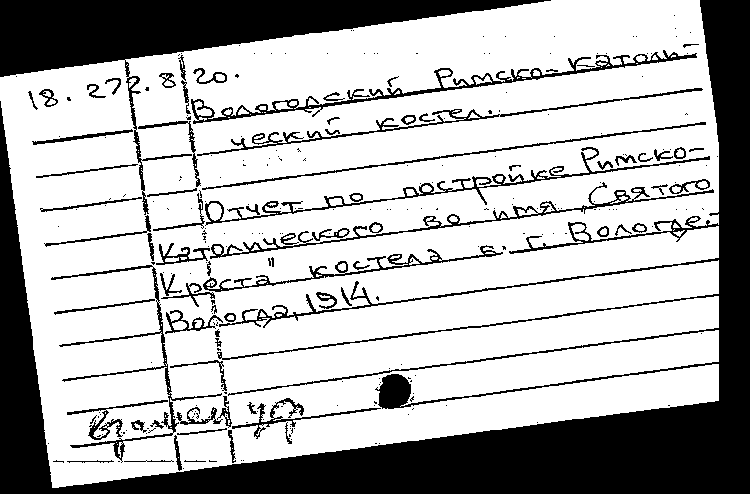 18. 272. 8/20.
Вологодский Римско-католи-
ческий костел.
Отчет по постройке Римско-
Католического во имя "Святого
Креста" костела в. г. Вологде.-
Вологда, 1914.
взамен утр